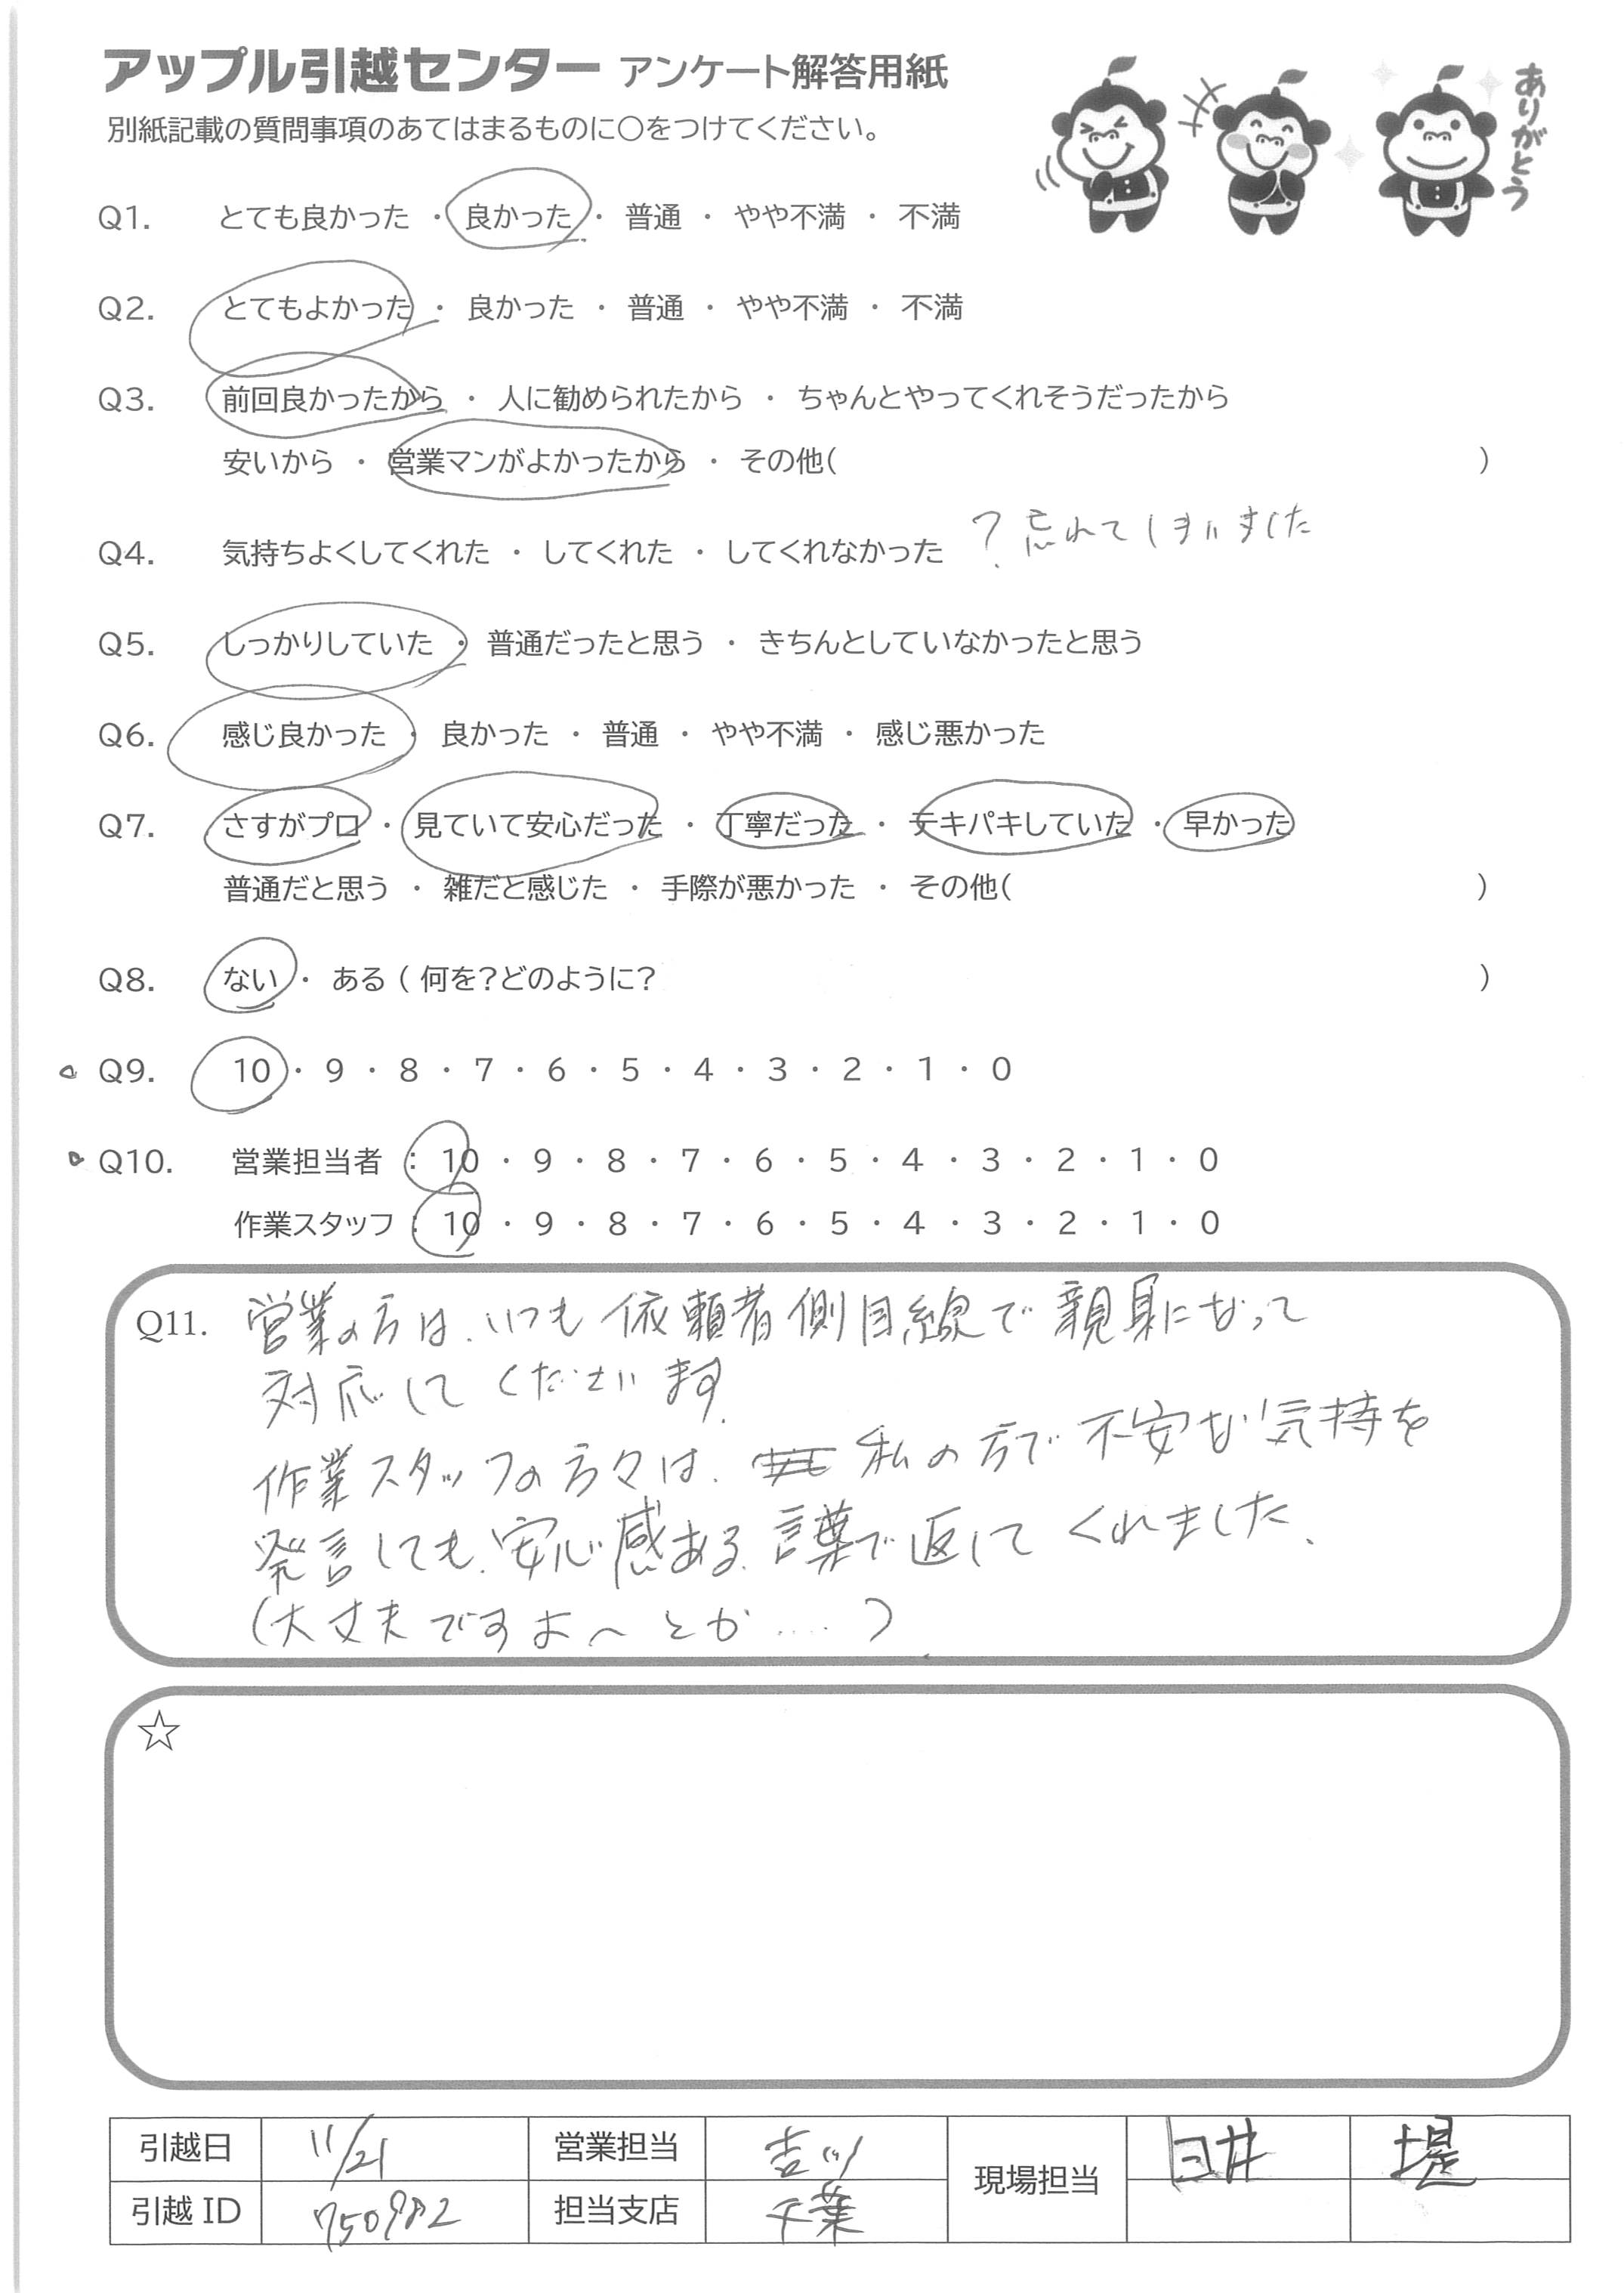 アップル引越センター アンケート解答用紙
ありがとう
別紙記載の質問事項のあてはまるものに○をつけてください。
Q1. とても良かった ・ 良かった ・ 普通 ・ やや不満 ・ 不満
Q2. とてもよかった ・ 良かった ・ 普通 ・ やや不満 ・ 不満
Q3. 前回良かったから ・ 人に勧められたから ・ ちゃんとやってくれそうだったから
安いから ・ 営業マンがよかったから ・ その他( )
Q4. 気持ちよくしてくれた ・ してくれた ・ してくれなかった ? 忘れてしまいました
Q5. しっかりしていた ・ 普通だったと思う ・ きちんとしていなかったと思う
Q6. 感じ良かった ・ 良かった ・ 普通 ・ やや不満 ・ 感じ悪かった
Q7. さすがプロ ・ 見ていて安心だった ・ 丁寧だった ・ テキパキしていた ・ 早かった
普通だと思う ・ 雑だと感じた ・ 手際が悪かった ・ その他( )
Q8. ない ・ ある ( 何を?どのように? )
Q9. 10 ・ 9 ・ 8 ・ 7 ・ 6 ・ 5 ・ 4 ・ 3 ・ 2 ・ 1 ・ 0
Q10. 営業担当者 : 10 ・ 9 ・ 8 ・ 7 ・ 6 ・ 5 ・ 4 ・ 3 ・ 2 ・ 1 ・ 0
作業スタッフ : 10 ・ 9 ・ 8 ・ 7 ・ 6 ・ 5 ・ 4 ・ 3 ・ 2 ・ 1 ・ 0
Q11. 営業の方は、いつも依頼者側目線で親身になって
対応してくださいます。
作業スタッフの方々は、私の方で不安な気持を
発言しても、安心感ある言葉で返してくれました。
(大丈夫ですよ〜とか....)
☆
引越日 11/21 営業担当 吉川 現場担当 臼井 堤
引越ID 750982 担当支店 千葉